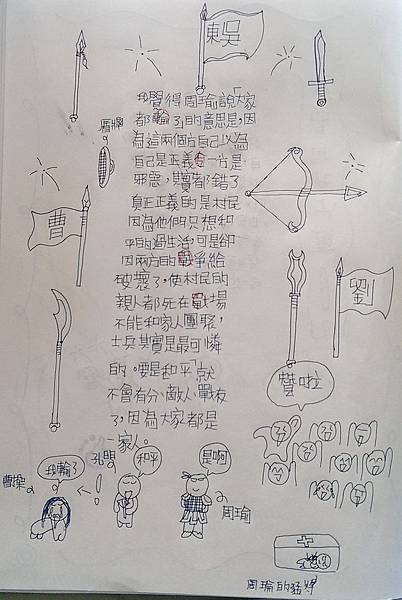 東吳
我覺得周瑜說「大家
都輸了」的意思是,因
為這兩個方自己以為
自己是正義的一方是
邪惡,其實都錯了
真正正義的是村民
因為他們只想和
平的過生活,可是卻
因兩方的戰爭給
破壞了,使村民的
親人都死在戰場
不能和家人團聚,
士兵其實是最可憐
的。要是和平」就
不會有分、敵人、戰友
了,因為大家都是
一家人。
盾牌
曹
劉
贊啦
曹操
我輸了
孔明
和平
是啊
周瑜
周瑜的猛將